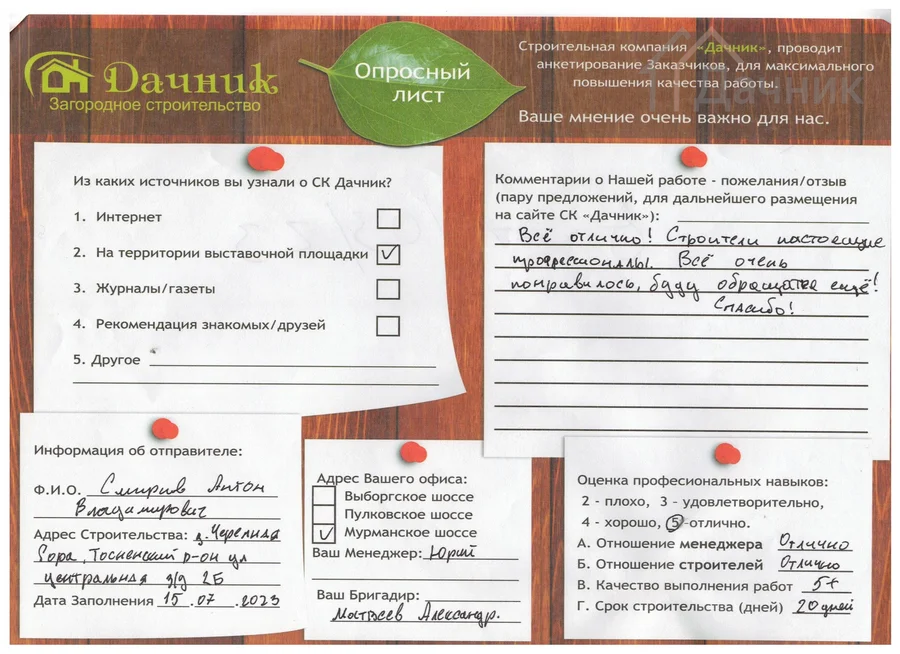 Дачник
Загородное строительство
Опросный
лист
Строительная компания «Дачник», проводит
анкетирование Заказчиков, для максимального
повышения качества работы.
Дачник
Ваше мнение очень важно для нас.
Из каких источников вы узнали о СК Дачник?
1. Интернет
2. На территории выставочной площадки
3. Журналы/газеты
4. Рекомендация знакомых/друзей
5. Другое
Комментарии о Нашей работе - пожелания/отзыв
(пару предложений, для дальнейшего размещения
на сайте СК «Дачник»):
Всё отлично! Строители настоещие
профессионллы. Всё очень
понравилось, буду обращатся ещё!
Спасибо!
Информация об отправителе:
Ф.И.О. Смирнов Антон
Владимирович
Адрес Строительства: д. Черепная
Гора, Тосненский р-он ул
центральная з/д 2Б
Дата Заполнения 15.07.2023
Адрес Вашего офиса:
Выборгское шоссе
Пулковское шоссе
Мурманское шоссе
Ваш Менеджер: Юрий
Ваш Бригадир:
Матвеев Александр.
Оценка професиональных навыков:
2 - плохо, 3 - удовлетворительно,
4 - хорошо, 5 -отлично.
А. Отношение менеджера Отлично
Б. Отношение строителей Отлично
В. Качество выполнения работ 5+
Г. Срок строительства (дней) 20 дней